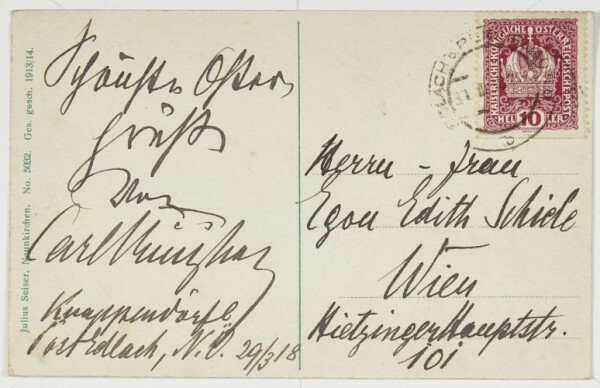 Julius Seiser, Neunkirchen. No. 5032. Ges. gesch. 1913/14.
Schönste Oster
grüße
von
Carl
Knappendörfl
Post Edlach, N.Ö. 29/3 18
KAISERLICHE KÖNIGLICHE ÖSTERREICHISCHE POST
HELLER
10
Herrn – Frau
Egon Edith Schiele
Wien
Hietzinger Hauptstr.
101